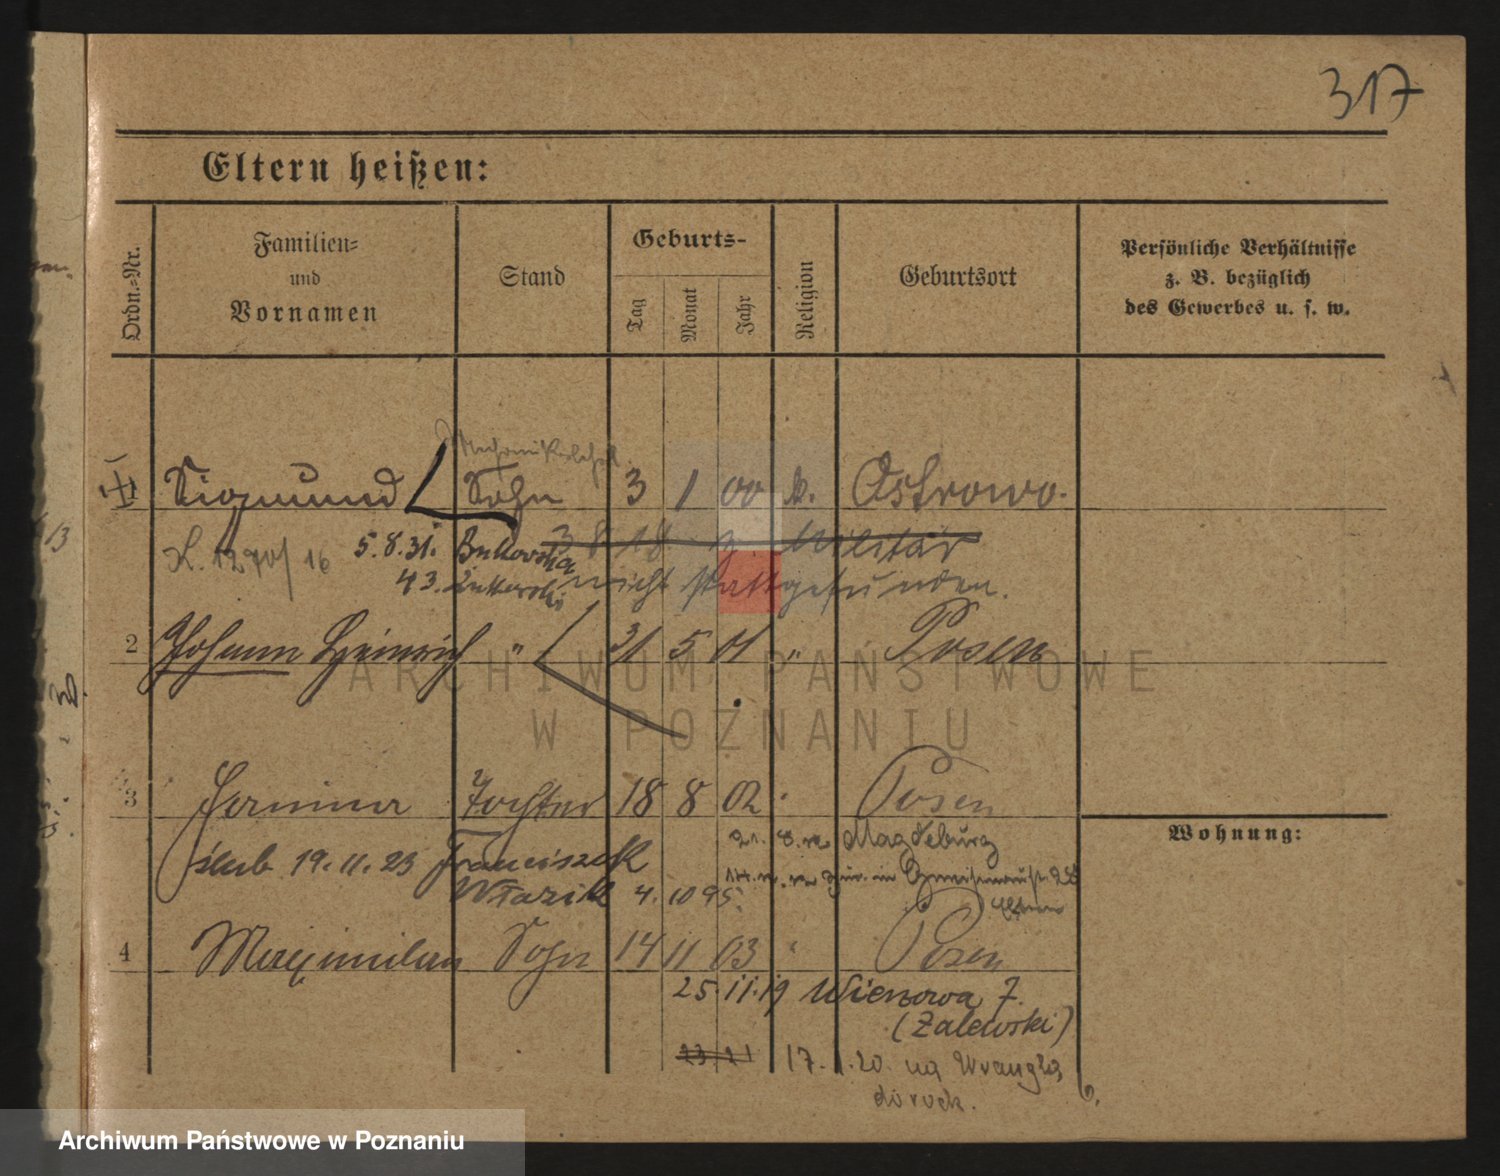 317
Eltern heißen:
Ordn.-Nr.
Familien-
und
Vornamen
Stand
Geburts-
Tag
Monat
Jahr
Religion
Geburtsort
Persönliche Verhältnisse
z. B. bezüglich
des Gewerbes u. s. w.
1 Sigmund Sohn 3 1 00 k. Ostrowo.
K. 1290/16 5.8.31. Bukowska 3 8 18 z. Militär
43. nicht stattgefunden.
2 Johann Heinrich " 31 5 01 " Posen
ARCHIWUM PAŃSTWOWE
W POZNANIU
3 Tochter 18 8 02 Posen
Wohnung:
21. 8. Magdeburg
ślub 19.11.23 Franciszek
Wtazik 4. 10 95.
Eltern
4 Maximilian Sohn 14 11 03 Posen
25.11.19 7.
(Zalewski)
23 21 17.1.20. na Wrangla
Archiwum Państwowe w Poznaniu